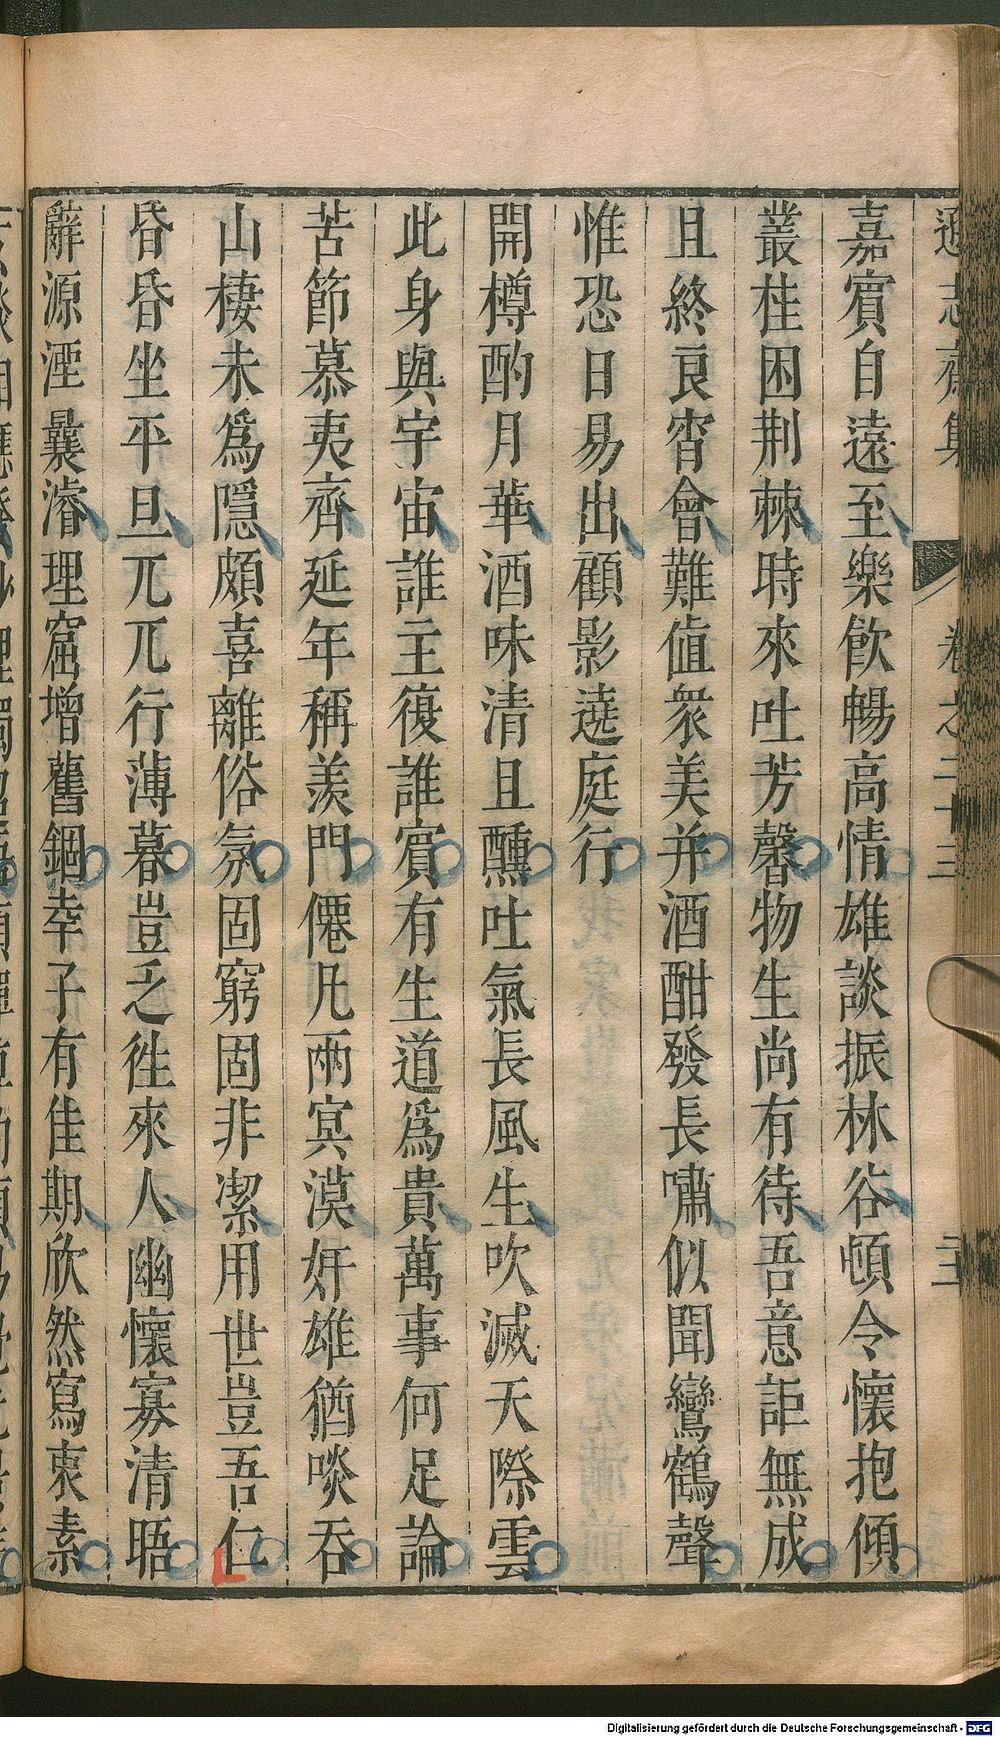 遜志齋集 卷之二十三
嘉賓自遠至樂飲暢高情雄談振林谷頓令懷抱傾
叢桂困荆棘時來吐芳馨物生尚有待吾意詎無成
且終良宵會難值衆美并酒酣發長嘯似聞鸞鶴聲
惟恐日易出顧影遶庭行
開樽酌月華酒味清且醺吐氣長風生吹滅天際雲
此身與宇宙誰主復誰賓有生道爲貴萬事何足論
苦節慕夷齊延年稱羨門僊凡兩冥漠奸雄猶啖吞
山棲未爲隱頗喜離俗氛固窮固非潔用世豈吾仁
昏昏坐平旦兀兀行薄暮豈乏徃來人幽懷寡清晤
辭源湮曩濬理窟增舊錮幸子有佳期欣然寫衷素
Digitalisierung gefördert durch die Deutsche Forschungsgemeinschaft - DFG